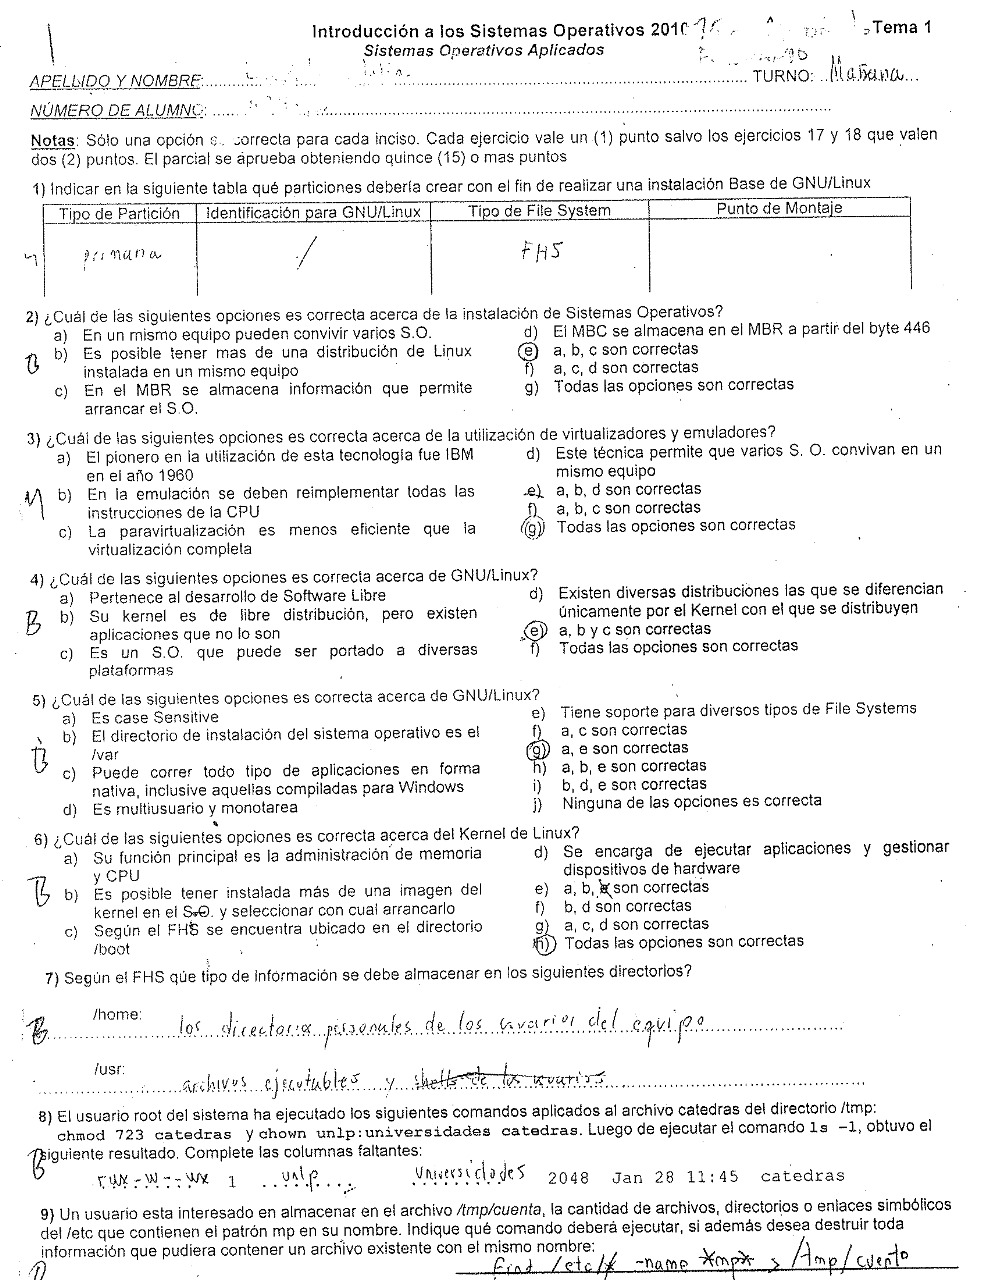 Introducción a los Sistemas Operativos 2010 Tema 1
Sistemas Operativos Aplicados
APELLIDO Y NOMBRE: TURNO: Mañana
NÚMERO DE ALUMNO:
Notas: Sólo una opción correcta para cada inciso. Cada ejercicio vale un (1) punto salvo los ejercicios 17 y 18 que valen
dos (2) puntos. El parcial se aprueba obteniendo quince (15) o mas puntos
1) Indicar en la siguiente tabla qué particiones debería crear con el fin de realizar una instalación Base de GNU/Linux
Tipo de Partición Identificación para GNU/Linux Tipo de File System Punto de Montaje
primaria / FHS
2) ¿Cuál de las siguientes opciones es correcta acerca de la instalación de Sistemas Operativos?
a) En un mismo equipo pueden convivir varios S.O.
B b) Es posible tener mas de una distribución de Linux
instalada en un mismo equipo
c) En el MBR se almacena información que permite
arrancar el S.O.
d) El MBC se almacena en el MBR a partir del byte 446
e) a, b, c son correctas
f) a, c, d son correctas
g) Todas las opciones son correctas
3) ¿Cuál de las siguientes opciones es correcta acerca de la utilización de virtualizadores y emuladores?
a) El pionero en la utilización de esta tecnología fue IBM
en el año 1960
M b) En la emulación se deben reimplementar todas las
instrucciones de la CPU
c) La paravirtualización es menos eficiente que la
virtualización completa
d) Este técnica permite que varios S. O. convivan en un
mismo equipo
e) a, b, d son correctas
f) a, b, c son correctas
g) Todas las opciones son correctas
4) ¿Cuál de las siguientes opciones es correcta acerca de GNU/Linux?
a) Pertenece al desarrollo de Software Libre
B b) Su kernel es de libre distribución, pero existen
aplicaciones que no lo son
c) Es un S.O. que puede ser portado a diversas
plataformas
d) Existen diversas distribuciones las que se diferencian
únicamente por el Kernel con el que se distribuyen
e) a, b y c son correctas
f) Todas las opciones son correctas
5) ¿Cuál de las siguientes opciones es correcta acerca de GNU/Linux?
a) Es case Sensitive
B b) El directorio de instalación del sistema operativo es el
/var
c) Puede correr todo tipo de aplicaciones en forma
nativa, inclusive aquellas compiladas para Windows
d) Es multiusuario y monotarea
e) Tiene soporte para diversos tipos de File Systems
f) a, c son correctas
g) a, e son correctas
h) a, b, e son correctas
i) b, d, e son correctas
j) Ninguna de las opciones es correcta
6) ¿Cuál de las siguientes opciones es correcta acerca del Kernel de Linux?
a) Su función principal es la administración de memoria
y CPU
B b) Es posible tener instalada más de una imagen del
kernel en el S.O. y seleccionar con cual arrancarlo
c) Según el FHS se encuentra ubicado en el directorio
/boot
d) Se encarga de ejecutar aplicaciones y gestionar
dispositivos de hardware
e) a, b, son correctas
f) b, d son correctas
g) a, c, d son correctas
h) Todas las opciones son correctas
7) Según el FHS que tipo de información se debe almacenar en los siguientes directorios?
B /home: los directorios personales de los usuarios del equipo
/usr: archivos ejecutables y shells de los usuarios
8) El usuario root del sistema ha ejecutado los siguientes comandos aplicados al archivo catedras del directorio /tmp:
chmod 723 catedras y chown unlp:universidades catedras. Luego de ejecutar el comando ls -l, obtuvo el
siguiente resultado. Complete las columnas faltantes:
B rwx-w--wx 1 unlp universidades 2048 Jan 28 11:45 catedras
9) Un usuario esta interesado en almacenar en el archivo /tmp/cuenta, la cantidad de archivos, directorios o enlaces simbólicos
del /etc que contienen el patrón mp en su nombre. Indique qué comando deberá ejecutar, si además desea destruir toda
información que pudiera contener un archivo existente con el mismo nombre:
find /etc/* -name *mp* > /tmp/cuenta